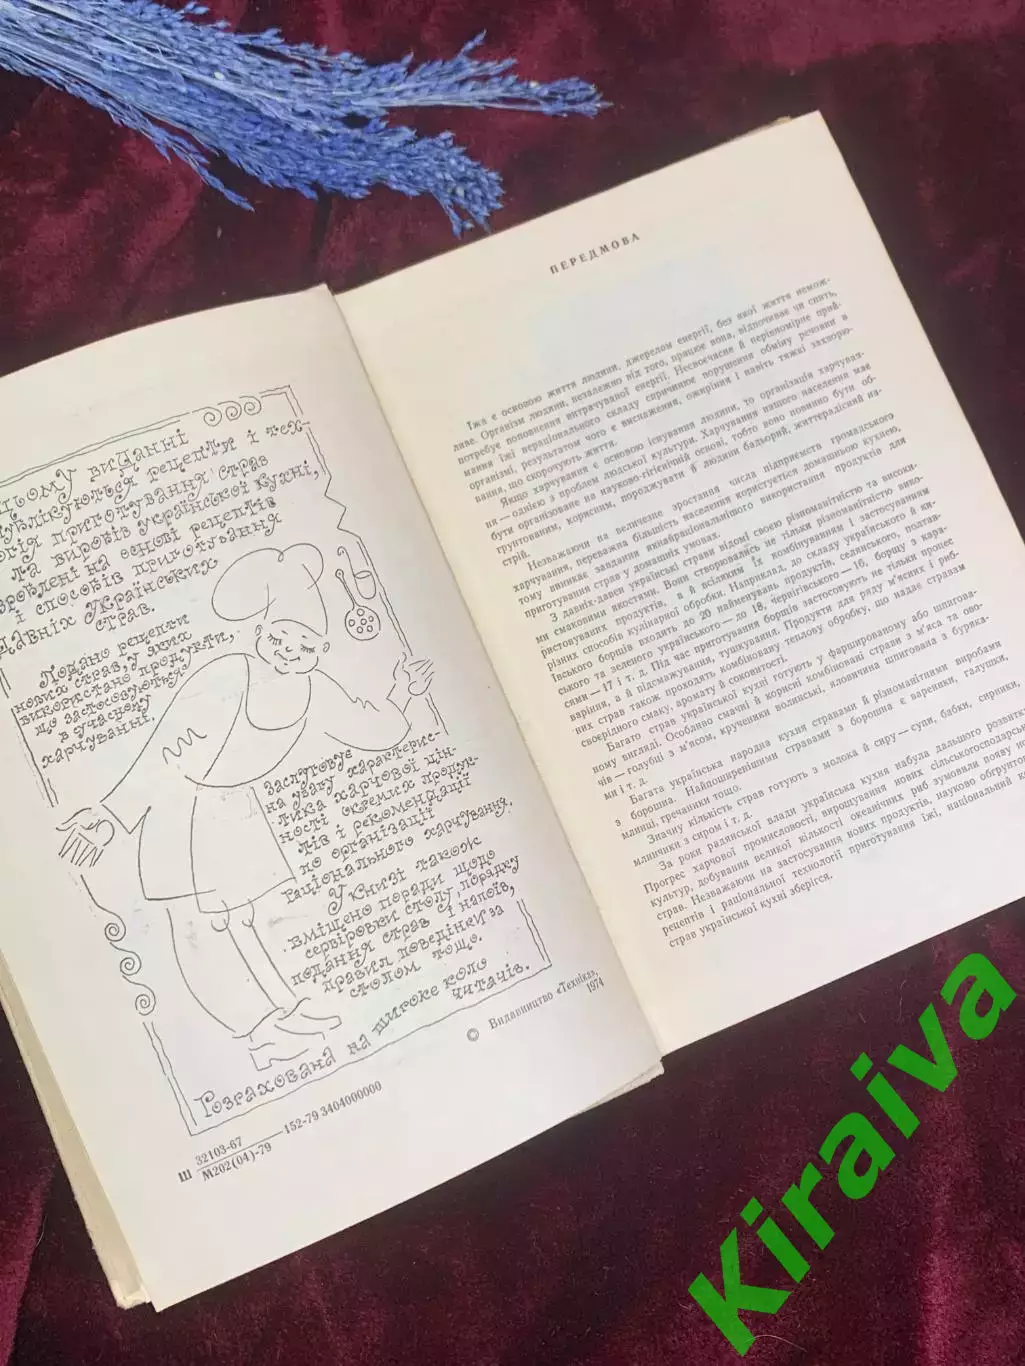 цьому виданні
публікуються рецепти і тех-
логія приготування страв
та виробів української кухні,
зроблені на основі рецептів
і способів приготування
давніх українських
страв.
Подано рецепти
нових страв, у яких
використано продукти,
що застосовуються
в сучасному
харчуванні.
Заслуговує
на увагу характерис-
тика харчової цін-
ності окремих продук-
тів і рекомендації
по організації
раціонального харчування.
У книзі також
вміщено поради щодо
сервіровки столу, порядку
подання страв і напоїв,
правил поведінки за
столом тощо.
Розрахована на широке коло
читачів.
© Видавництво «Техніка»,
1974
Ш 32103-67 152-79 3404000000
М202(04)-79
ПЕРЕДМОВА
Їжа є основою життя людини, джерелом енергії, без якої життя немож-
ливе. Організм людини, незалежно від того, працює вона, відпочиває чи спить,
потребує поповнення витрачуваної енергії. Несвоєчасне й нерівномірне прий-
мання їжі нераціонального складу спричинює порушення обміну речовин в
організмі, результатом чого є виснаження, ожиріння і навіть тяжкі захворю-
вання, що скорочують життя.
Якщо харчування є основою існування людини, то організація харчуван-
ня — однією з проблем людської культури. Харчування нашого населення має
бути організоване на науково-гігієнічній основі, тобто воно повинно бути об-
грунтованим, корисним, породжувати й людини бадьорий, життєрадісний на-
стрій.
Незважаючи на величезне зростання числа підприємств громадського
харчування, переважна більшість населення користується домашньою кухнею,
тому виникає завдання якнайраціональнішого використання продуктів для
приготування страв у домашніх умовах.
З давніх-давен українські страви відомі своєю різноманітністю та високи-
ми смаковими якостями. Вони створювались не тільки різноманітністю вико-
ристовуваних продуктів, а й всіляким їх комбінуванням і застосуванням
різних способів кулінарної обробки. Наприклад, до складу українського й ки-
ївського борщів входить до 20 найменувань продуктів, селянського, полтав-
ського та зеленого українського — до 18, чернігівського — 16, борщу з кара-
сями — 17 і т. д. Під час приготування борщів застосовують не тільки процес
варіння, а й підсмажування, тушкування. Продукти для ряду м'ясних і риб-
них страв також проходять комбіновану теплову обробку, що надає стравам
своєрідного смаку, аромату й соковитості.
Багато страв української кухні готують у фаршированому або шпигова-
ному вигляді. Особливо смачні й корисні комбіновані страви з м'яса та ово-
чів — голубці з м'ясом, крученики волинські, яловичина шпигована з буряка-
ми і т. д.
Багата українська народна кухня стравами й різноманітними виробами
з борошна. Найпоширенішими стравами з борошна є вареники, галушки,
млинці, гречаники тощо.
Значну кількість страв готують з молока й сиру — супи, бабки, сирники,
млинчики з сиром і т. д.
За роки радянської влади українська кухня набула дальшого розвитк
Прогрес харчової промисловості, вирощування нових сільськогосподарськ
культур, добування великої кількості океанічних риб зумовили появу но
страв. Незважаючи на застосування нових продуктів, науково обгрунт
рецептів і раціональної технології приготування їжі, національний к
страв української кухні зберігся.
Kiraiva